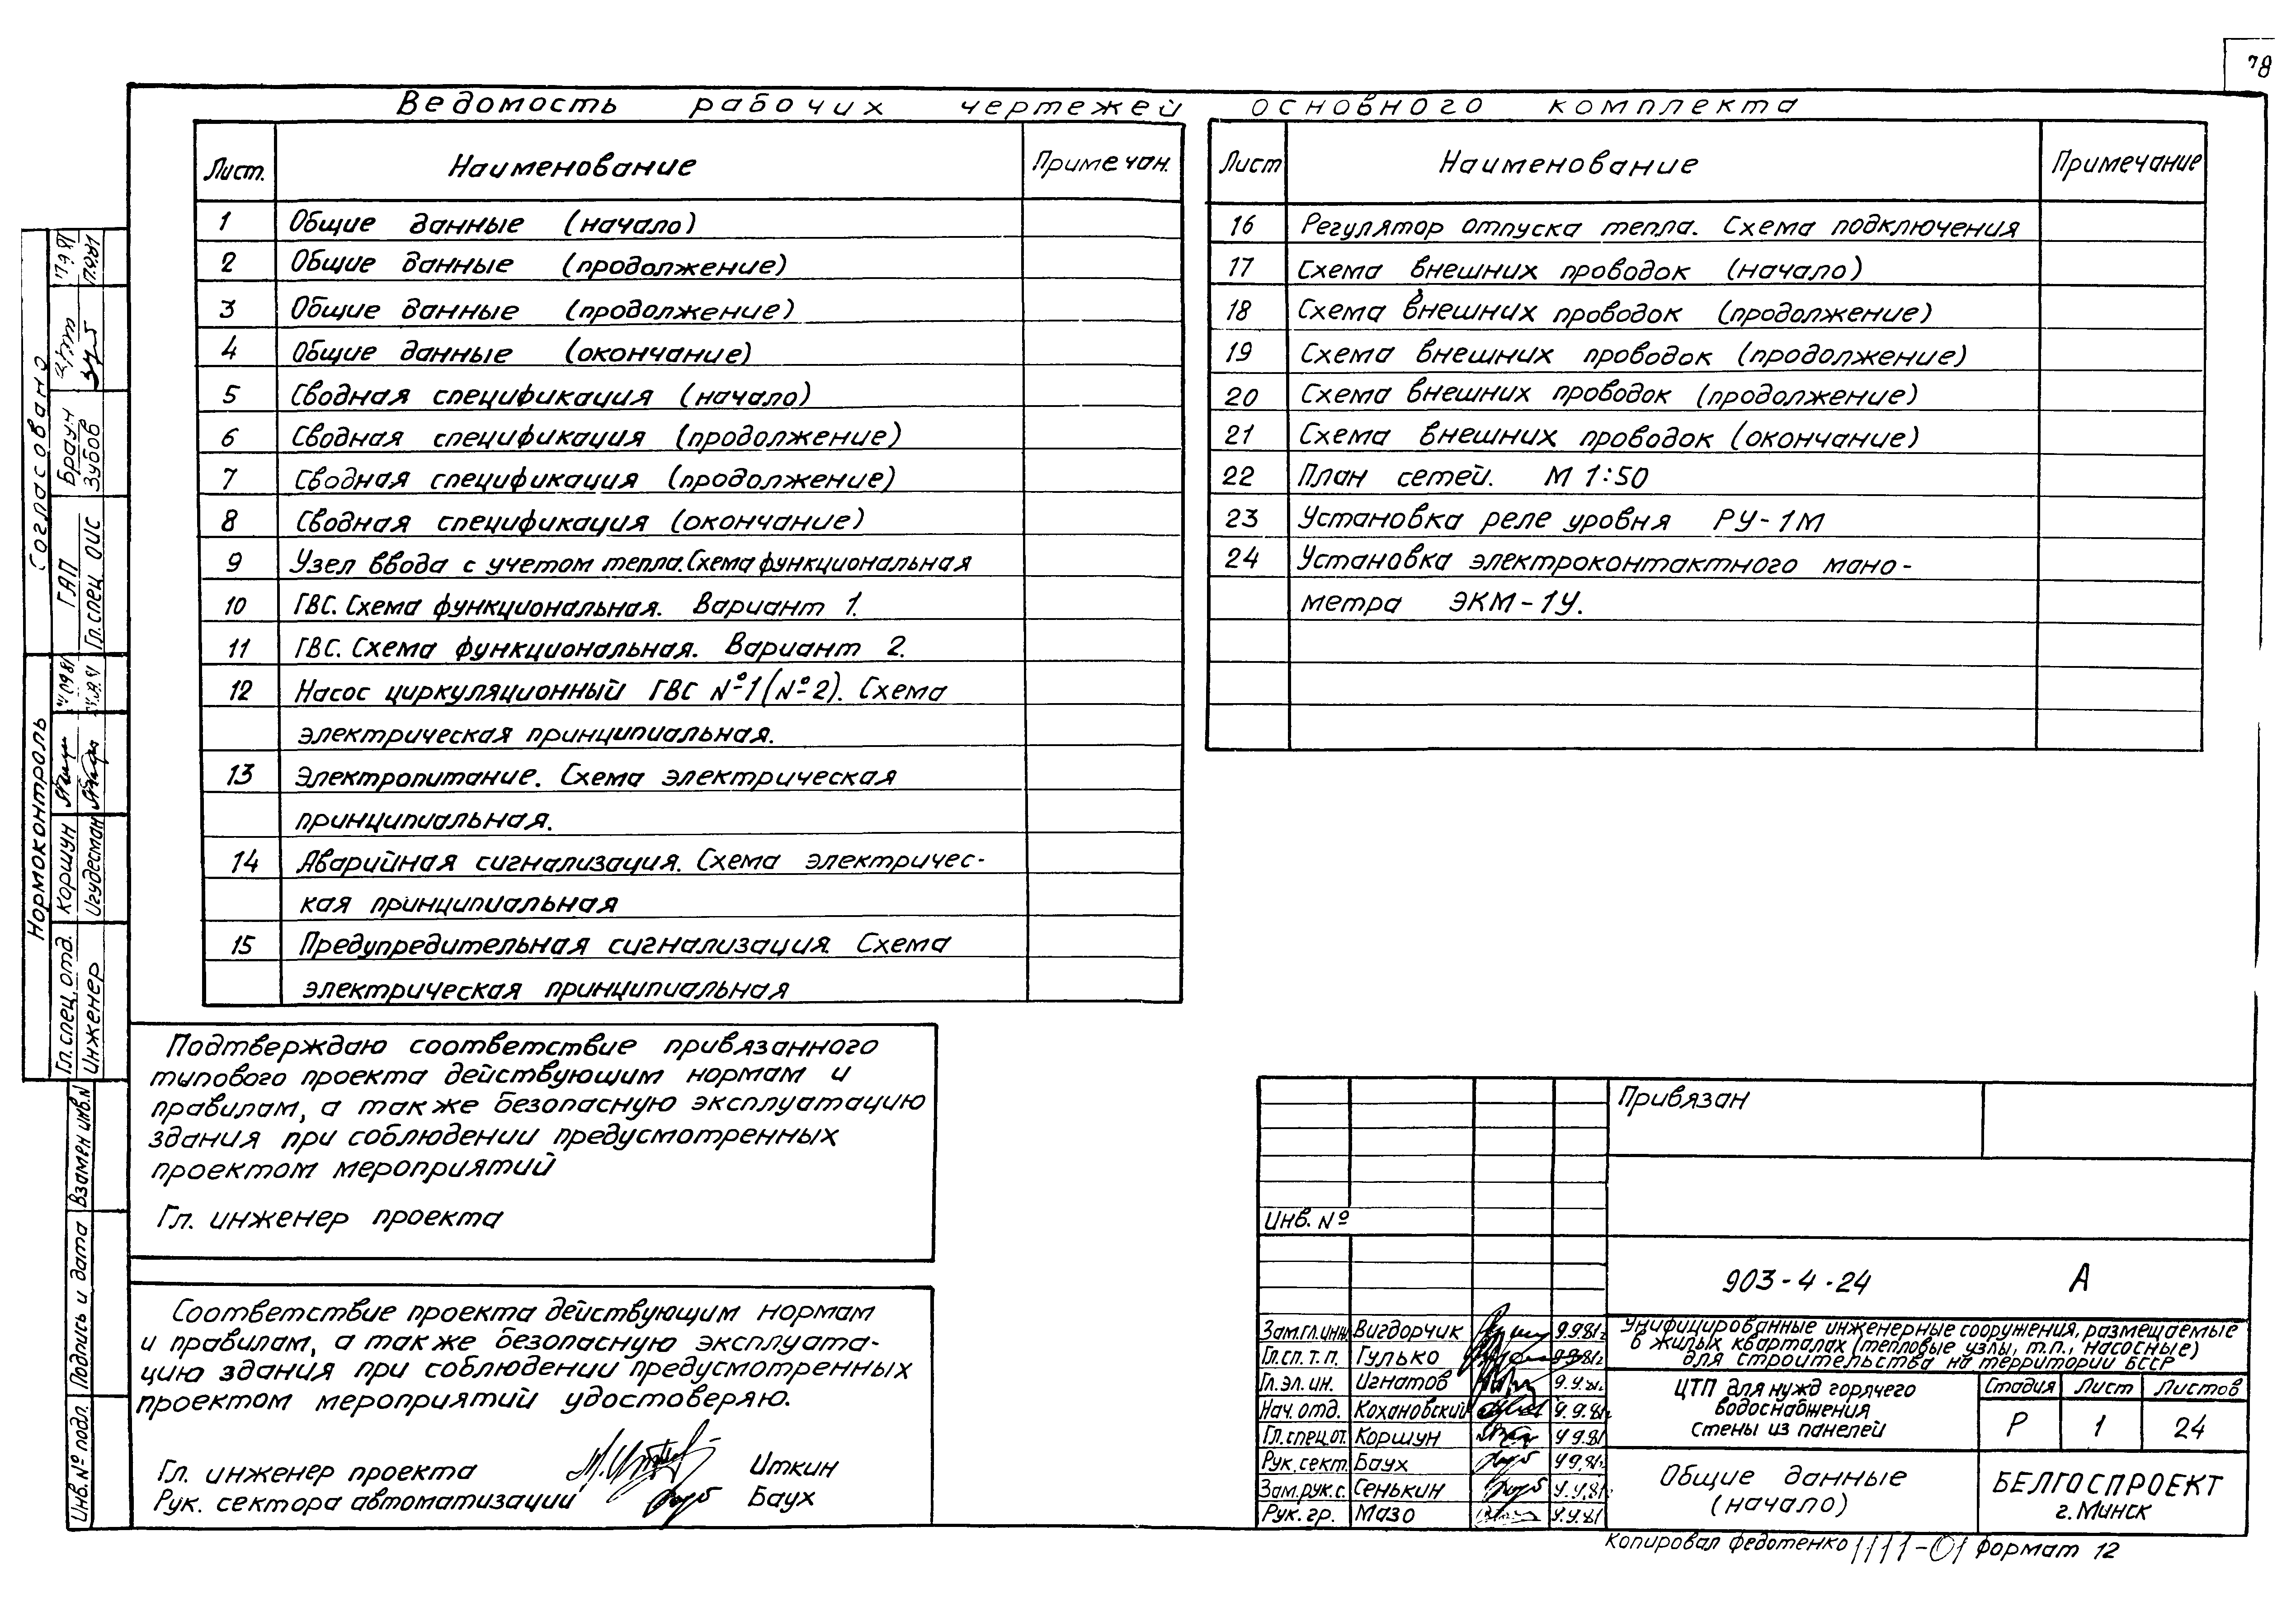 78
Ведомость рабочих чертежей основного комплекта
Лист. Наименование Примечан.
1 Общие данные (начало)
2 Общие данные (продолжение)
3 Общие данные (продолжение)
4 Общие данные (окончание)
5 Сводная спецификация (начало)
6 Сводная спецификация (продолжение)
7 Сводная спецификация (продолжение)
8 Сводная спецификация (окончание)
9 Узел ввода с учетом тепла. Схема функциональная
10 ГВС. Схема функциональная. Вариант 1.
11 ГВС. Схема функциональная. Вариант 2.
12 Насос циркуляционный ГВС №1 (№2). Схема
электрическая принципиальная.
13 Электропитание. Схема электрическая
принципиальная.
14 Аварийная сигнализация. Схема электричес-
кая принципиальная
15 Предупредительная сигнализация. Схема
электрическая принципиальная
Лист Наименование Примечание
16 Регулятор отпуска тепла. Схема подключения
17 Схема внешних проводок (начало)
18 Схема внешних проводок (продолжение)
19 Схема внешних проводок (продолжение)
20 Схема внешних проводок (продолжение)
21 Схема внешних проводок (окончание)
22 План сетей. М 1:50
23 Установка реле уровня РУ-1М
24 Установка электроконтактного мано-
метра ЭКМ-1У.
Согласовано
ГАП Браун 17.9.81
Гл. спец. ОИС Зубов 17.9.81
Нормоконтроль
Гл. спец. отд. Коршун
Инженер Игудесман
Взамен инв.№
Подпись и дата
Инв. № подл.
Подтверждаю соответствие привязанного
типового проекта действующим нормам и
правилам, а также безопасную эксплуатацию
здания при соблюдении предусмотренных
проектом мероприятий
Гл. инженер проекта
Соответствие проекта действующим нормам
и правилам, а также безопасную эксплуата-
цию здания при соблюдении предусмотренных
проектом мероприятий удостоверяю.
Гл. инженер проекта Иткин
Рук. сектора автоматизации Баух
Привязан
Инв. №
903-4-24 А
Зам.гл.инж. Вигдорчик 9.9.81г.
Гл.сп.т.п. Гулько 9.9.81г.
Гл.эл.ин. Игнатов 9.9.81г.
Нач.отд. Кохановский 9.9.81г.
Гл.спец.от. Коршун 9.9.81
Рук.сект. Баух 9.9.81г.
Зам.рук.с. Сенькин 9.9.81г.
Рук.гр. Мазо 9.9.81
Унифицированные инженерные сооружения, размещаемые
в жилых кварталах (тепловые узлы, т.п., насосные)
для строительства на территории БССР
ЦТП для нужд горячего
водоснабжения
Стены из панелей
Стадия Лист Листов
Р 1 24
Общие данные
(начало)
БЕЛГОСПРОЕКТ
г. Минск
Копировал Федотенко 1111-01 Формат 12